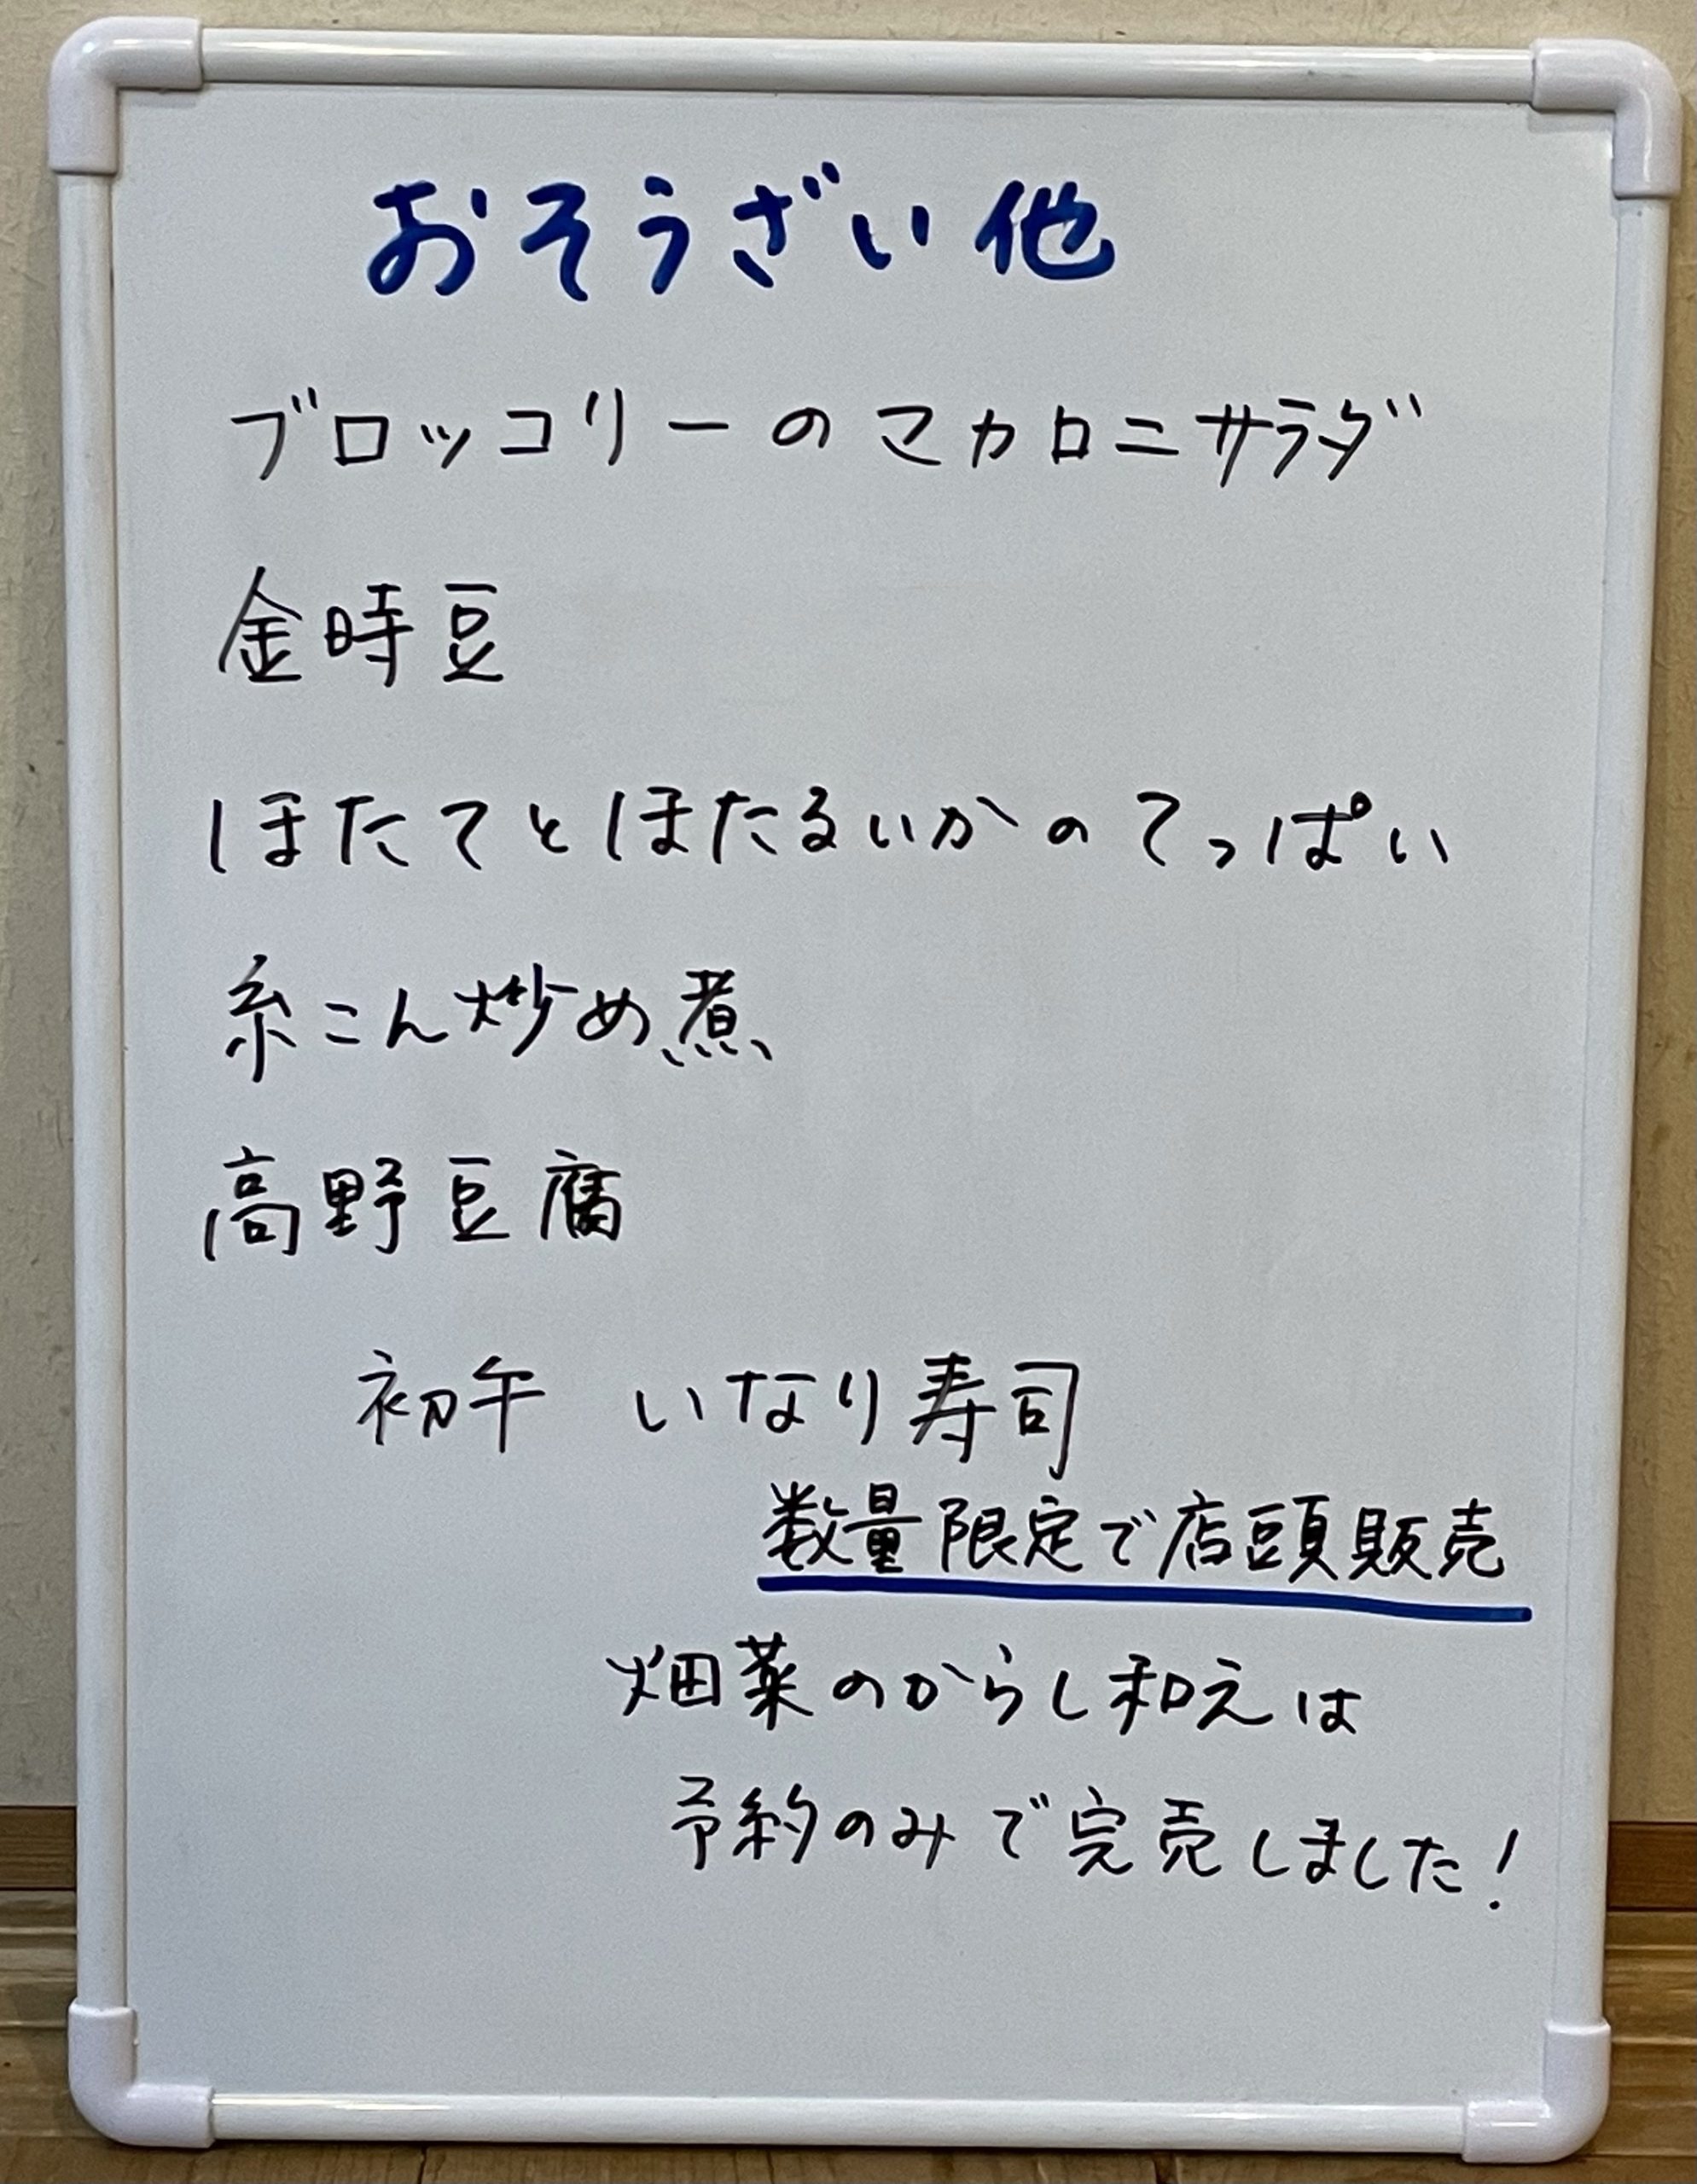 おそうざい他
ブロッコリーのマカロニサラダ
金時豆
ほたてとほたるいかのてっぱい
糸こん炒め煮
高野豆腐
初午 いなり寿司
数量限定で店頭販売
畑菜のからし和えは
予約のみで完売しました!